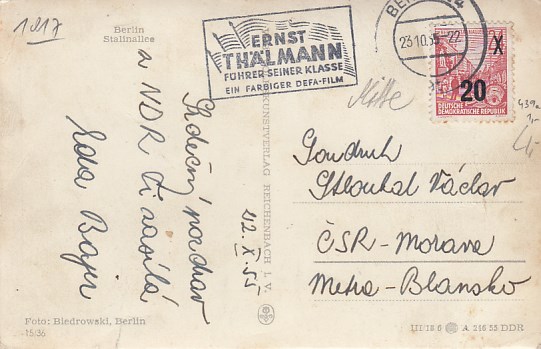 1817
Berlin
Stalinallee
ERNST
THÄLMANN
FÜHRER SEINER KLASSE
EIN FARBIGER DEFA-FILM
BERLIN
23.10.55-22
20
DEUTSCHE
DEMOKRATISCHE REPUBLIK
439a
Mitte
Srdečný pozdrav
z NDR Ti zasílá
Eda Bajer
22.X.55
KUNSTVERLAG REICHENBACH I. V.
Soudruh
Stloukal Václav
ČSR-Morava
Metra-Blansko
Foto: Biedrowski, Berlin
15/36
III 18 6 A 216 55 DDR